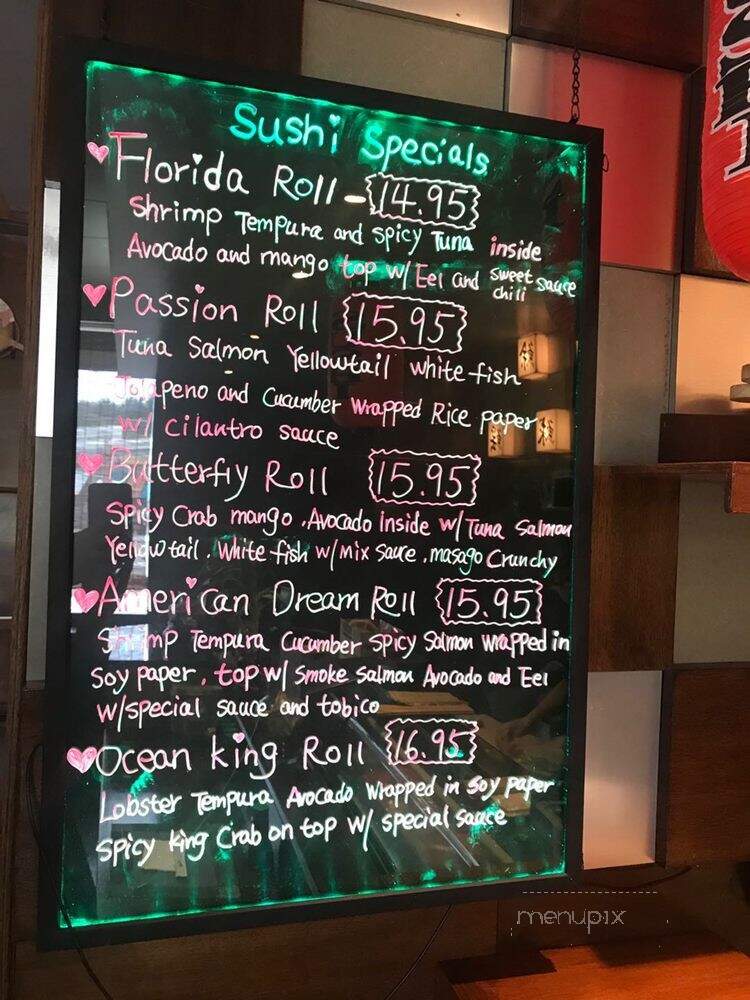 Sushi Specials
Florida Roll - 14.95
Shrimp Tempura and Spicy Tuna inside
Avocado and mango top w/ Eel and sweet chili sauce
Passion Roll 15.95
Tuna Salmon Yellowtail white fish
Jalapeno and Cucumber Wrapped Rice paper
w/ cilantro sauce
Butterfly Roll 15.95
Spicy Crab mango . Avocado inside w/ Tuna Salmon
Yellow tail . White fish w/ mix sauce . masago Crunchy
American Dream Roll 15.95
Shrimp Tempura Cucumber spicy Salmon wrapped in
Soy paper . top w/ Smoke Salmon Avocado and Eel
w/special sauce and tobico
Ocean king Roll 16.95
Lobster Tempura Avocado wrapped in Soy paper
spicy king Crab on top w/ special sauce
menupix